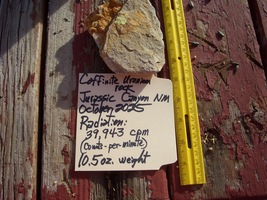 Coffinite Uranium
rock
Jurassic Canyon NM
October 2025
Radiation:
39,943 cpm
(Counts-per-minute)
10.5 oz. weight